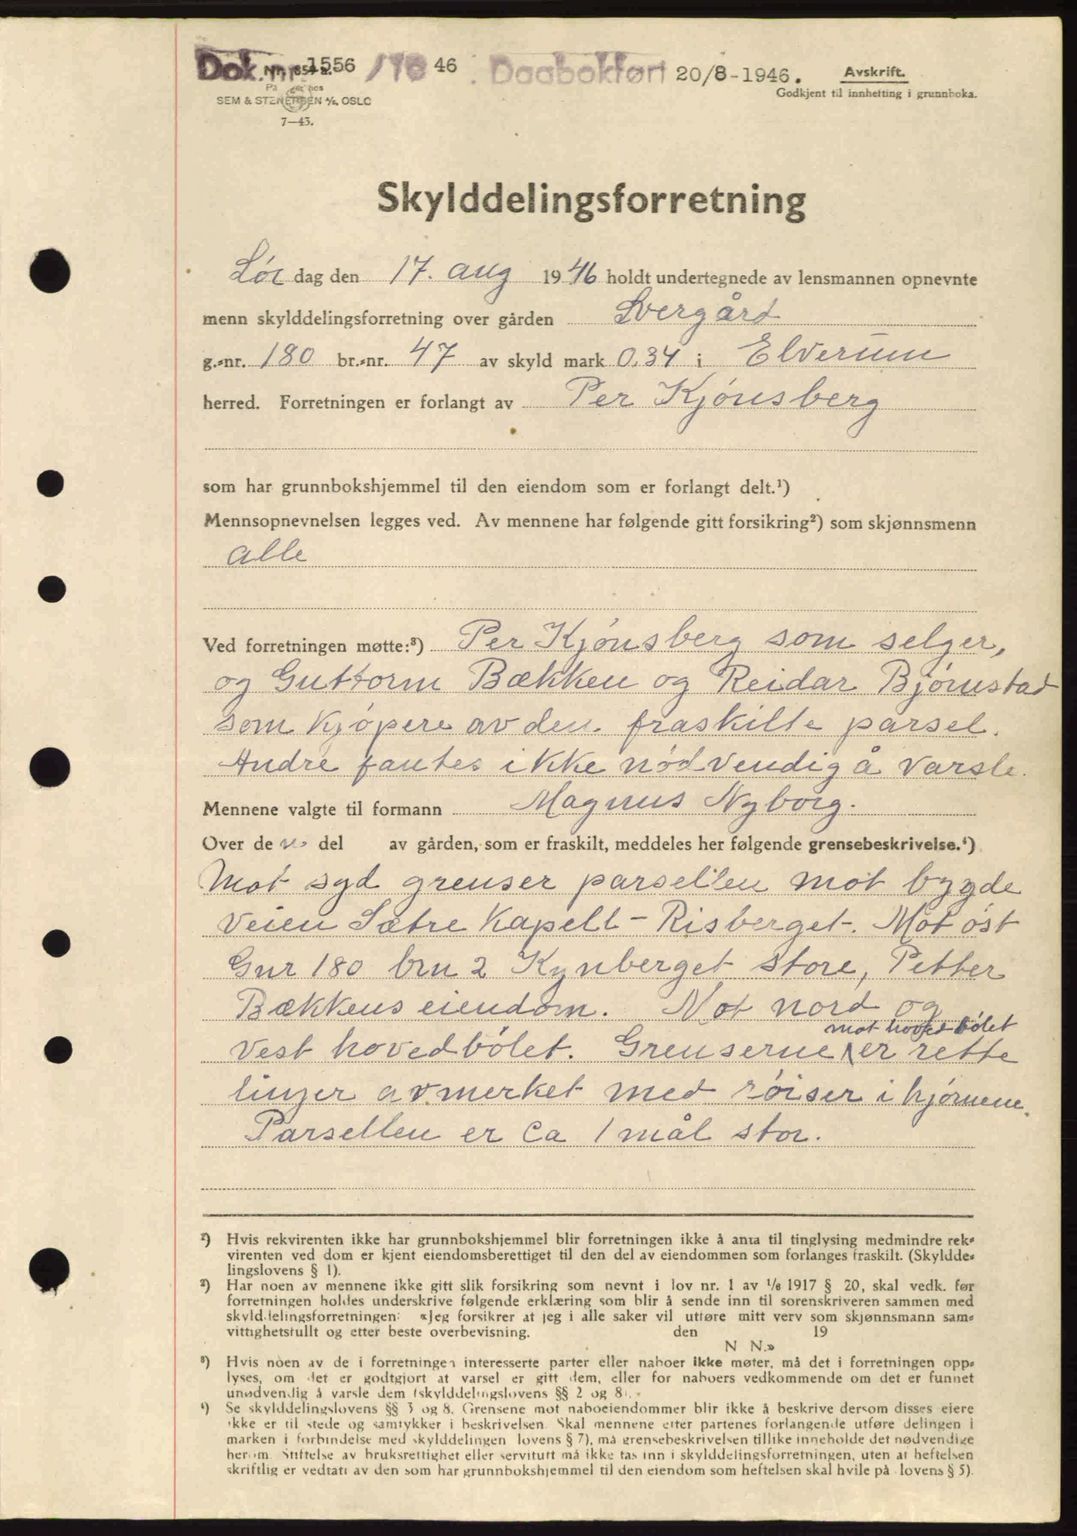 Dok. nr. 1556 /19 46 Dagbokført 20/8-1946. Avskrift.
Godkjent til innhefting i grunnboka.
SEM & STENERSEN A/S, OSLO
7—43.
Skylddelingsforretning
Lør dag den 17. aug 19 46 holdt undertegnede av lensmannen opnevnte
menn skylddelingsforretning over gården Svergård
g.-nr. 180 br.-nr. 47 av skyld mark 0.34 i Elverum
herred. Forretningen er forlangt av Per Kjønsberg
som har grunnbokshjemmel til den eiendom som er forlangt delt.¹)
Mennsopnevnelsen legges ved. Av mennene har følgende gitt forsikring²) som skjønnsmenn
alle
Ved forretningen møtte:³) Per Kjønsberg som selger,
og Guttorm Bækken og Reidar Bjørnstad
som kjøpere av den fraskilte parsel.
Andre fantes ikke nødvendig å varsle.
Mennene valgte til formann Magnus Nyborg.
Over de n del av gården, som er fraskilt, meddeles her følgende grensebeskrivelse.⁴)
Mot syd grenser parsellen mot bygde
veien Sætre Kapell - Risberget. Mot øst
Gnr 180 brn 2 Kynberget store, Petter
Bækkens eiendom. Mot nord og
mot hovedbølet
vest hovedbølet. Grenserne er rette
linjer avmerket med røiser i hjørnene.
Parsellen er ca 1 mål stor.
¹) Hvis rekvirenten ikke har grunnbokshjemmel blir forretningen ikke å anta til tinglysing medmindre rek-
virenten ved dom er kjent eiendomsberettiget til den del av eiendommen som forlanges fraskilt. (Skyldde-
lingslovens § 1).
²) Har noen av mennene ikke gitt slik forsikring som nevnt i lov nr. 1 av 1/6 1917 § 20, skal vedk. før
forretningen holdes underskrive følgende erklæring som blir å sende inn til sorenskriveren sammen med
skylddelingsforretningen: «Jeg forsikrer at jeg i alle saker vil utføre mitt verv som skjønnsmann sam-
vittighetsfullt og etter beste overbevisning. den 19
N N.»
³) Hvis noen av de i forretningen interesserte parter eller naboer ikke møter, må det i forretningen opp-
lyses, om det er godtgjort at varsel er gitt dem, eller for naboers vedkommende om det er funnet
unødvendig å varsle dem (skylddelingslovens §§ 2 og 8).
⁴) Se skylddelingslovens §§ 3 og 8. Grensene mot naboeiendommer blir ikke å beskrive dersom disses eiere
ikke er til stede og samtykker i beskrivelsen. Skal mennene etter partenes forlangende utføre delingen i
marken i forbindelse med skylddelingen (lovens § 7), må grensebeskrivelsen tillike inneholde det nødvendige
herom. Stiftelse av bruksrettighet eller servitutt må ikke tas inn i skylddelingsforretningen, uten at heftelsen
skriftlig er vedtatt av den som har grunnbokshjemmel til den eiendom som heftelsen skal hvile på (lovens § 5).